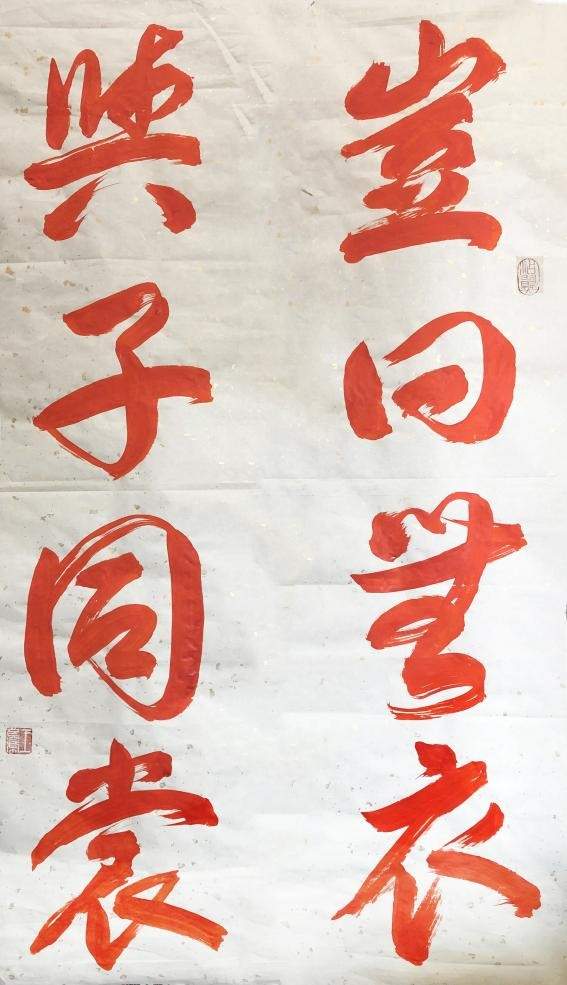 豈曰無衣
與子同裳